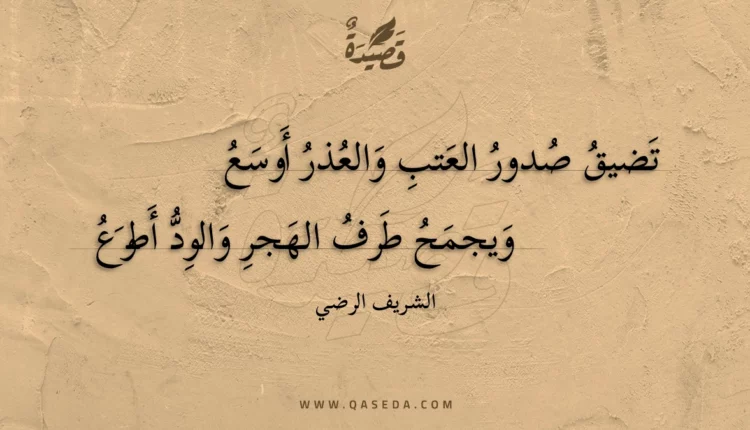 قَصِيدَةٌ
تَضيقُ صُدورُ العَتبِ وَالعُذرُ أَوسَعُ
وَيجمَحُ طَرفُ الهَجرِ وَالوِدُّ أَطوَعُ
الشريف الرضي
WWW.QASEDA.COM